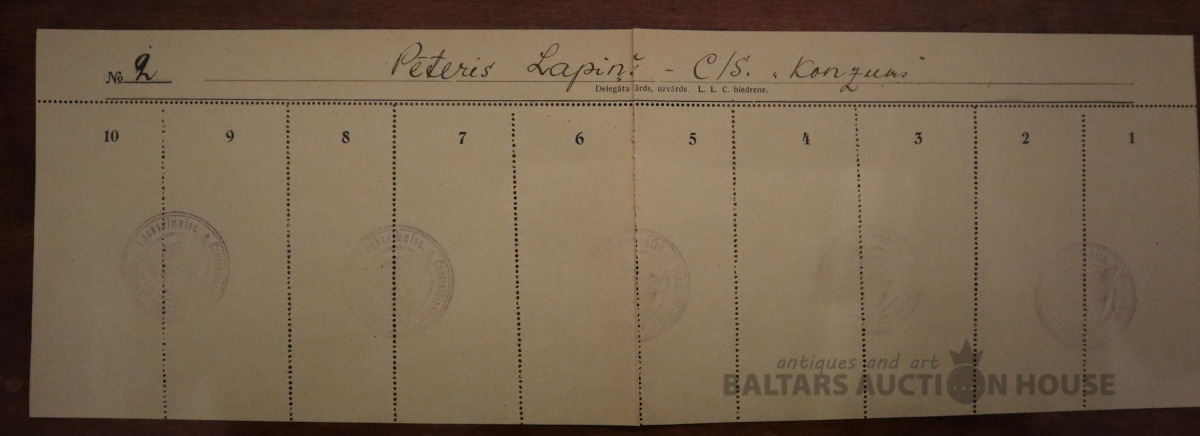 No 2 Pēteris Lapiņš – C/S. „Konzums"
Delegāta vārds, uzvārds. L. L. C. biedrene.
10 9 8 7 6 5 4 3 2 1
antiques and art
BALTARS AUCTION HOUSE